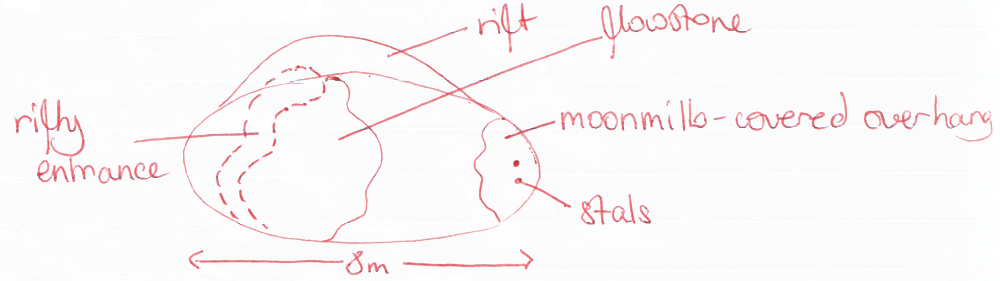 rift
flowstone
moonmilk-covered overhang
rifty
entrance
stals
8m